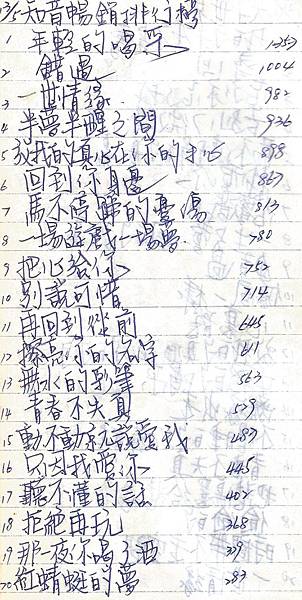 12/5-知音暢銷排行榜
1 年輕的喝采 1257
2 錯過 1004
3 一世情緣 982
4 半夢半醒之間 936
5 放我的真心在你的手心 898
6 回到你身邊 867
7 馬不停蹄的憂傷 813
8 一場遊戲一場夢 780
9 把心給你 752
10 別說可惜 714
11 再回到從前 645
12 擦亮你的名字 611
13 無水的彩筆 563
14 青春不失真 529
15 動不動就說愛我 487
16 只因我愛你 445
17 聽不懂的話 402
18 拒絕再玩 368
19 那一夜你喝了酒 329
20 紅蜻蜓的夢 283